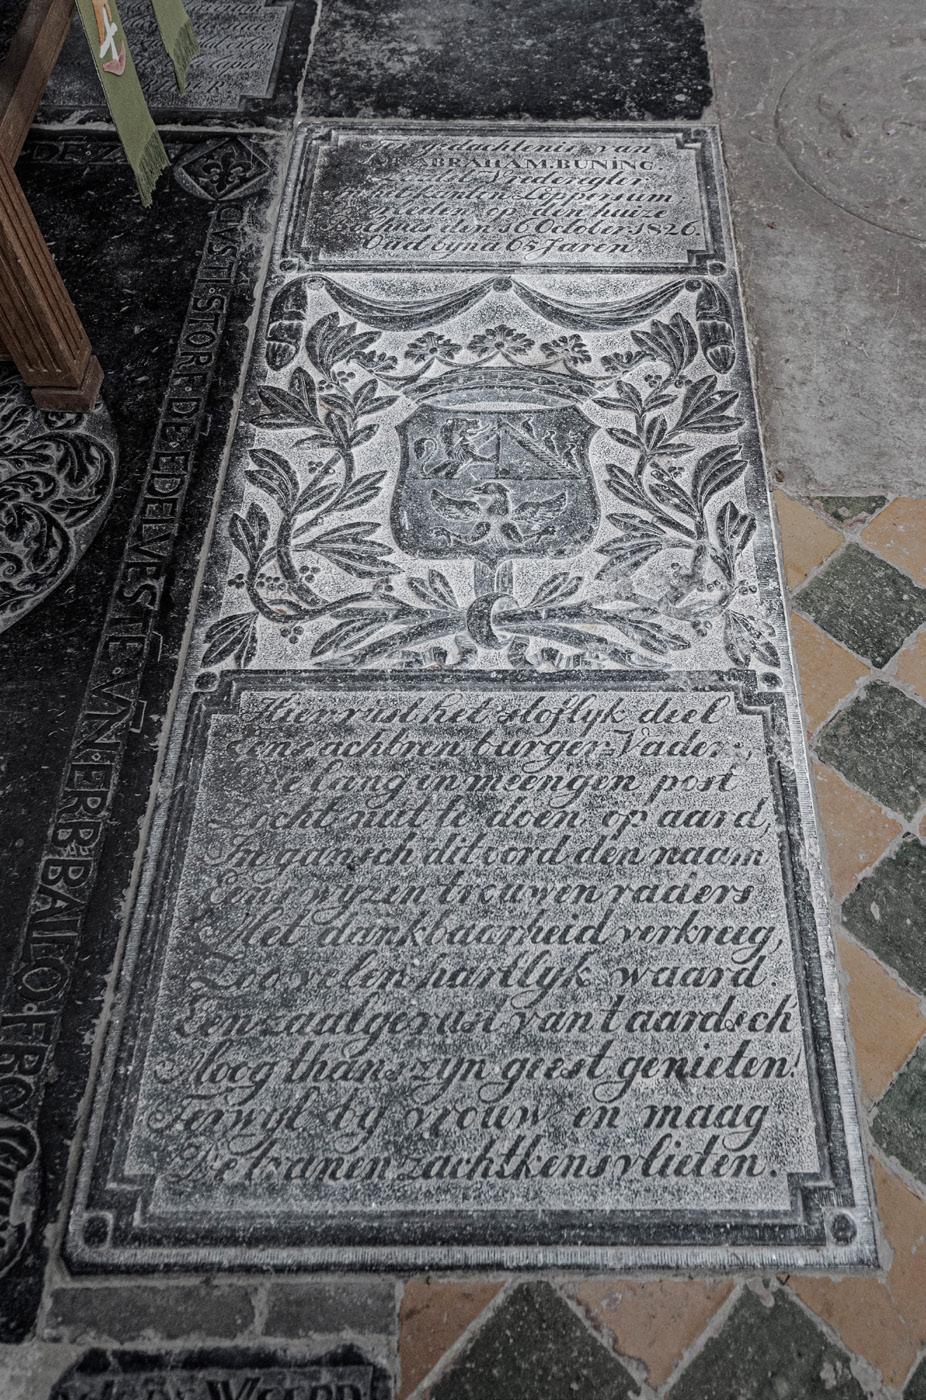 Ter gedachtenis van
ABRAHAM M. BUNING
Vrederegter
Loppersum
overleden op den huize
den 16 October 1826.
Oud byna 65 Jaren.
Hier rust het stoflyk deel
Eens achtbren burger-Vader;
Die lang in meengen post
Zocht nut te doen op aard,
In gansch dit oord den naam
Eens wyzen trouwen raders
Met dankbaarheid verkreeg
Zoo velen hartlyk waard.
Een zaalge rust van t aardsch
Moog thans zyn geest genieten!
Terwyl by vrouw en maag
De tranen zachtkens vlieten.
DVSTISTORF.DE.EDELVESTE.VAN.ERBBA.IONFRO